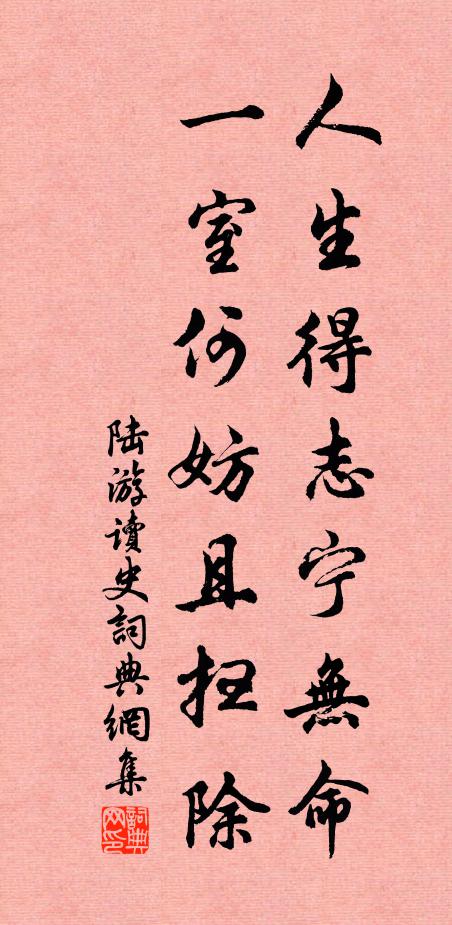 人生得志宁無命
一室何妨且扫除
陆游讀史詞典網集
詞典网印